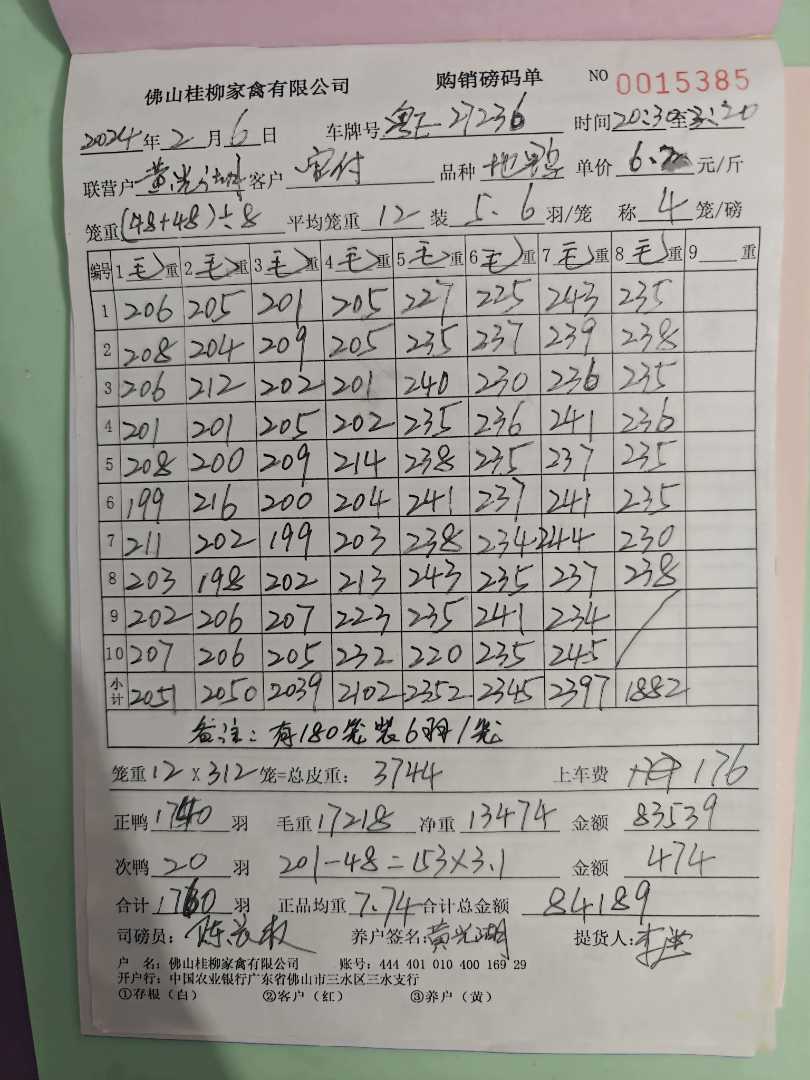 佛山桂柳家禽有限公司 购销磅码单 NO 0015385
2024年2月6日 车牌号 粤E-27236 时间20:30至3:20
联营户 黄光 客户 品种 单价 6.2 元/斤
笼重(48+48)÷8 平均笼重 12 装 5.6 羽/笼 称 4 笼/磅
编号 1毛重 2毛重 3毛重 4毛重 5毛重 6毛重 7毛重 8毛重 9 重
1 206 205 201 205 227 225 243 235
2 208 204 209 205 235 237 239 238
3 206 212 202 201 240 230 236 235
4 201 201 205 202 235 236 241 236
5 208 200 209 214 238 235 237 235
6 199 216 200 204 241 237 241 235
7 211 202 199 203 238 234 244 230
8 203 198 202 213 243 235 237 238
9 202 206 207 223 235 241 234
10 207 206 205 232 220 235 245
小计 2051 2050 2039 2102 2352 2345 2397 1882
备注:有180笼装6羽/笼
笼重12×312笼=总皮重: 3744 上车费 176
正鸭 1740 羽 毛重 17218 净重 13474 金额 83539
次鸭 20 羽 201-48=153×3.1 金额 474
合计 1760 羽 正品均重 7.74 合计总金额 84189
司磅员: 陈 养户签名: 黄光 提货人: 李
户 名: 佛山桂柳家禽有限公司 账号: 444 401 010 400 169 29
开户行: 中国农业银行广东省佛山市三水区三水支行
①存根(白) ②客户(红) ③养户(黄)